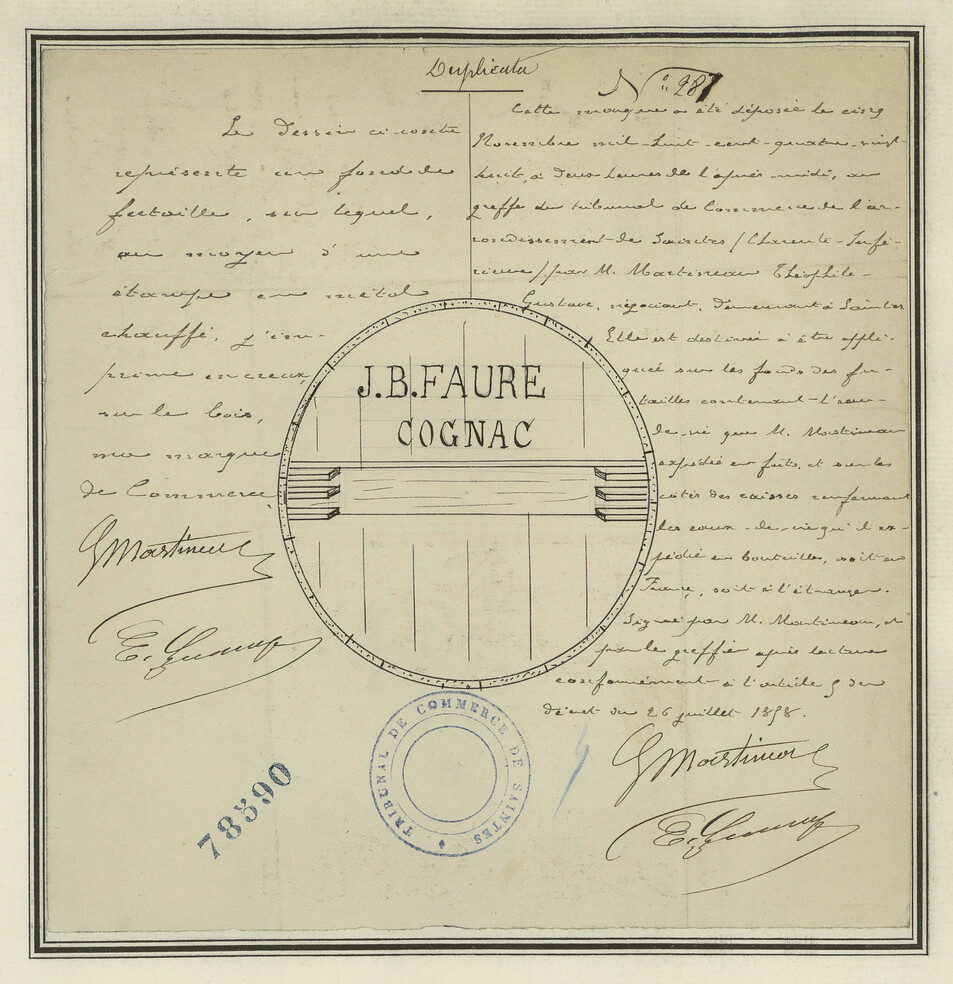 Duplicata
Le dessin ci-contre
représente un fond de
futaille, sur lequel,
au moyen d'une
étampe en métal
chauffé, j'im-
prime en creux,
sur le bois,
ma marque
de Commerce
GMartineau
N° 287
Cette marque a été déposée le cinq
Novembre mil-huit-cent-quatre-vingt-
huit, à deux heures de l'après-midi, au
greffe du tribunal de Commerce de l'ar-
rondissement de Saintes (Charente-Infé-
rieure) par M. Martineau Théophile-
Gustave, négociant, demeurant à Saintes
Elle est destinée à être appli-
quée sur les fonds des fu-
tailles contenant l'eau-
de-vie que M. Martineau
expédie en fûts, et sur les
côtés des caisses renfermant
les eaux-de-vie qu'il ex-
pédie en bouteilles, soit en
France, soit à l'étranger.
Signé par M. Martineau, et
par le greffier après lecture
conformément à l'article 5 du
décret du 26 juillet 1858.
GMartineau
J.B.FAURE
COGNAC
TRIBUNAL DE COMMERCE DE SAINTES
78590